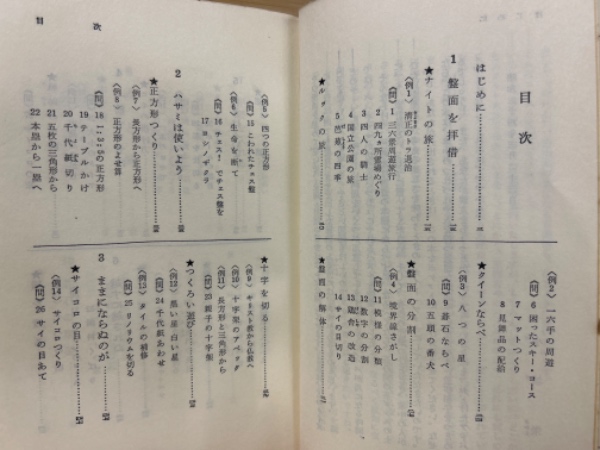 目次
はじめに
1 盤面を拝借
★ナイトの旅
〈例1〉 清正のトラ退治
〈問〉 1 三六景周遊旅行
2 四九ヵ所霊場めぐり
3 四人の騎士
4 国立公園の旅
5 芭蕉の四季
★ルックの旅
〈例2〉 一六手の周遊
〈問〉 6 困ったスキー・コース
7 マットつくり
8 見舞品の配給
★クイーンならべ
〈例3〉 八つの星
〈問〉 9 碁石ならべ
10 五頭の番犬
★盤面の分割
〈例4〉 境界線さがし
〈問〉 11 模様の分割
12 数字の分割
13 宿舎の改造
14 サイの目切り
★盤面の解体
目次
〈例5〉 四つの正方形
〈問〉 15 こわれたチェス盤
〈例6〉 生命を断て
〈問〉 16 チェス!でチェス盤を
17 ヨシノザクラ
2 ハサミは使いよう
★正方形つくり
〈例7〉 長方形から正方形へ
〈例8〉 正方形のよせ算
〈問〉 18 1:3:5の正方形
19 テーブルかけ
20 千代紙切り
21 五枚の三角形から
22 本塁から一塁へ
★十字を切る
〈例9〉 キリスト教から仏教へ
〈例10〉 十字架のアベック
〈例11〉 長方形と三角形から
〈問〉 23 銀子の十字架
★つくろい遊び
〈例12〉 黒い星白い星
〈問〉 24 千代紙あわせ
〈例13〉 タイルの補修
〈問〉 25 リノリウムを切る
3 ままにならぬのが
★サイコロの目
〈例14〉 サイコロつくり
〈問〉 26 サイの目あて